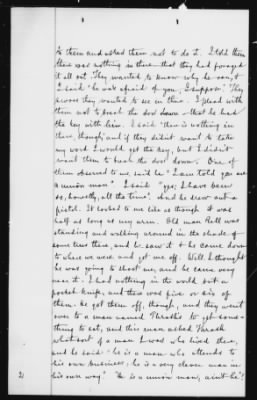 to them and asked them not to do it. I told them
there was nothing in there - that they had foraged
it all out. They wanted to know why he ran, &
I said "he was afraid of you, I suppose." They
swore they wanted to see in there. I plead with
them not to break the door down - that he had
the key with him. I said "there is nothing in
there, though," and if they didn't want to take
my word I would get the key, but I didn't
want them to break the door down. One of
them to me, said he "I am told you are
a union man." I said "yes; I have been
so, honestly, all the time". And he drew out a
pistol. It looked to me like as though it was
half as long as my arm. Old man Bell was
standing and walking around in the shade of
some trees there, and he saw it & he came down
to where we were and got me off. Well, I thought
he was going to shoot me, and he came very
near it. I had nothing in the world but a
pocket knife, and there was five or six of
them. He got them off, though, and they went
over to a man named to get some-
thing to eat, and this man asked
what sort of a man I was who lived there,
and he said "he is a man who attends to
his own business; he is a very clever man in
his own way." "He is a union man, ain't he"?
2